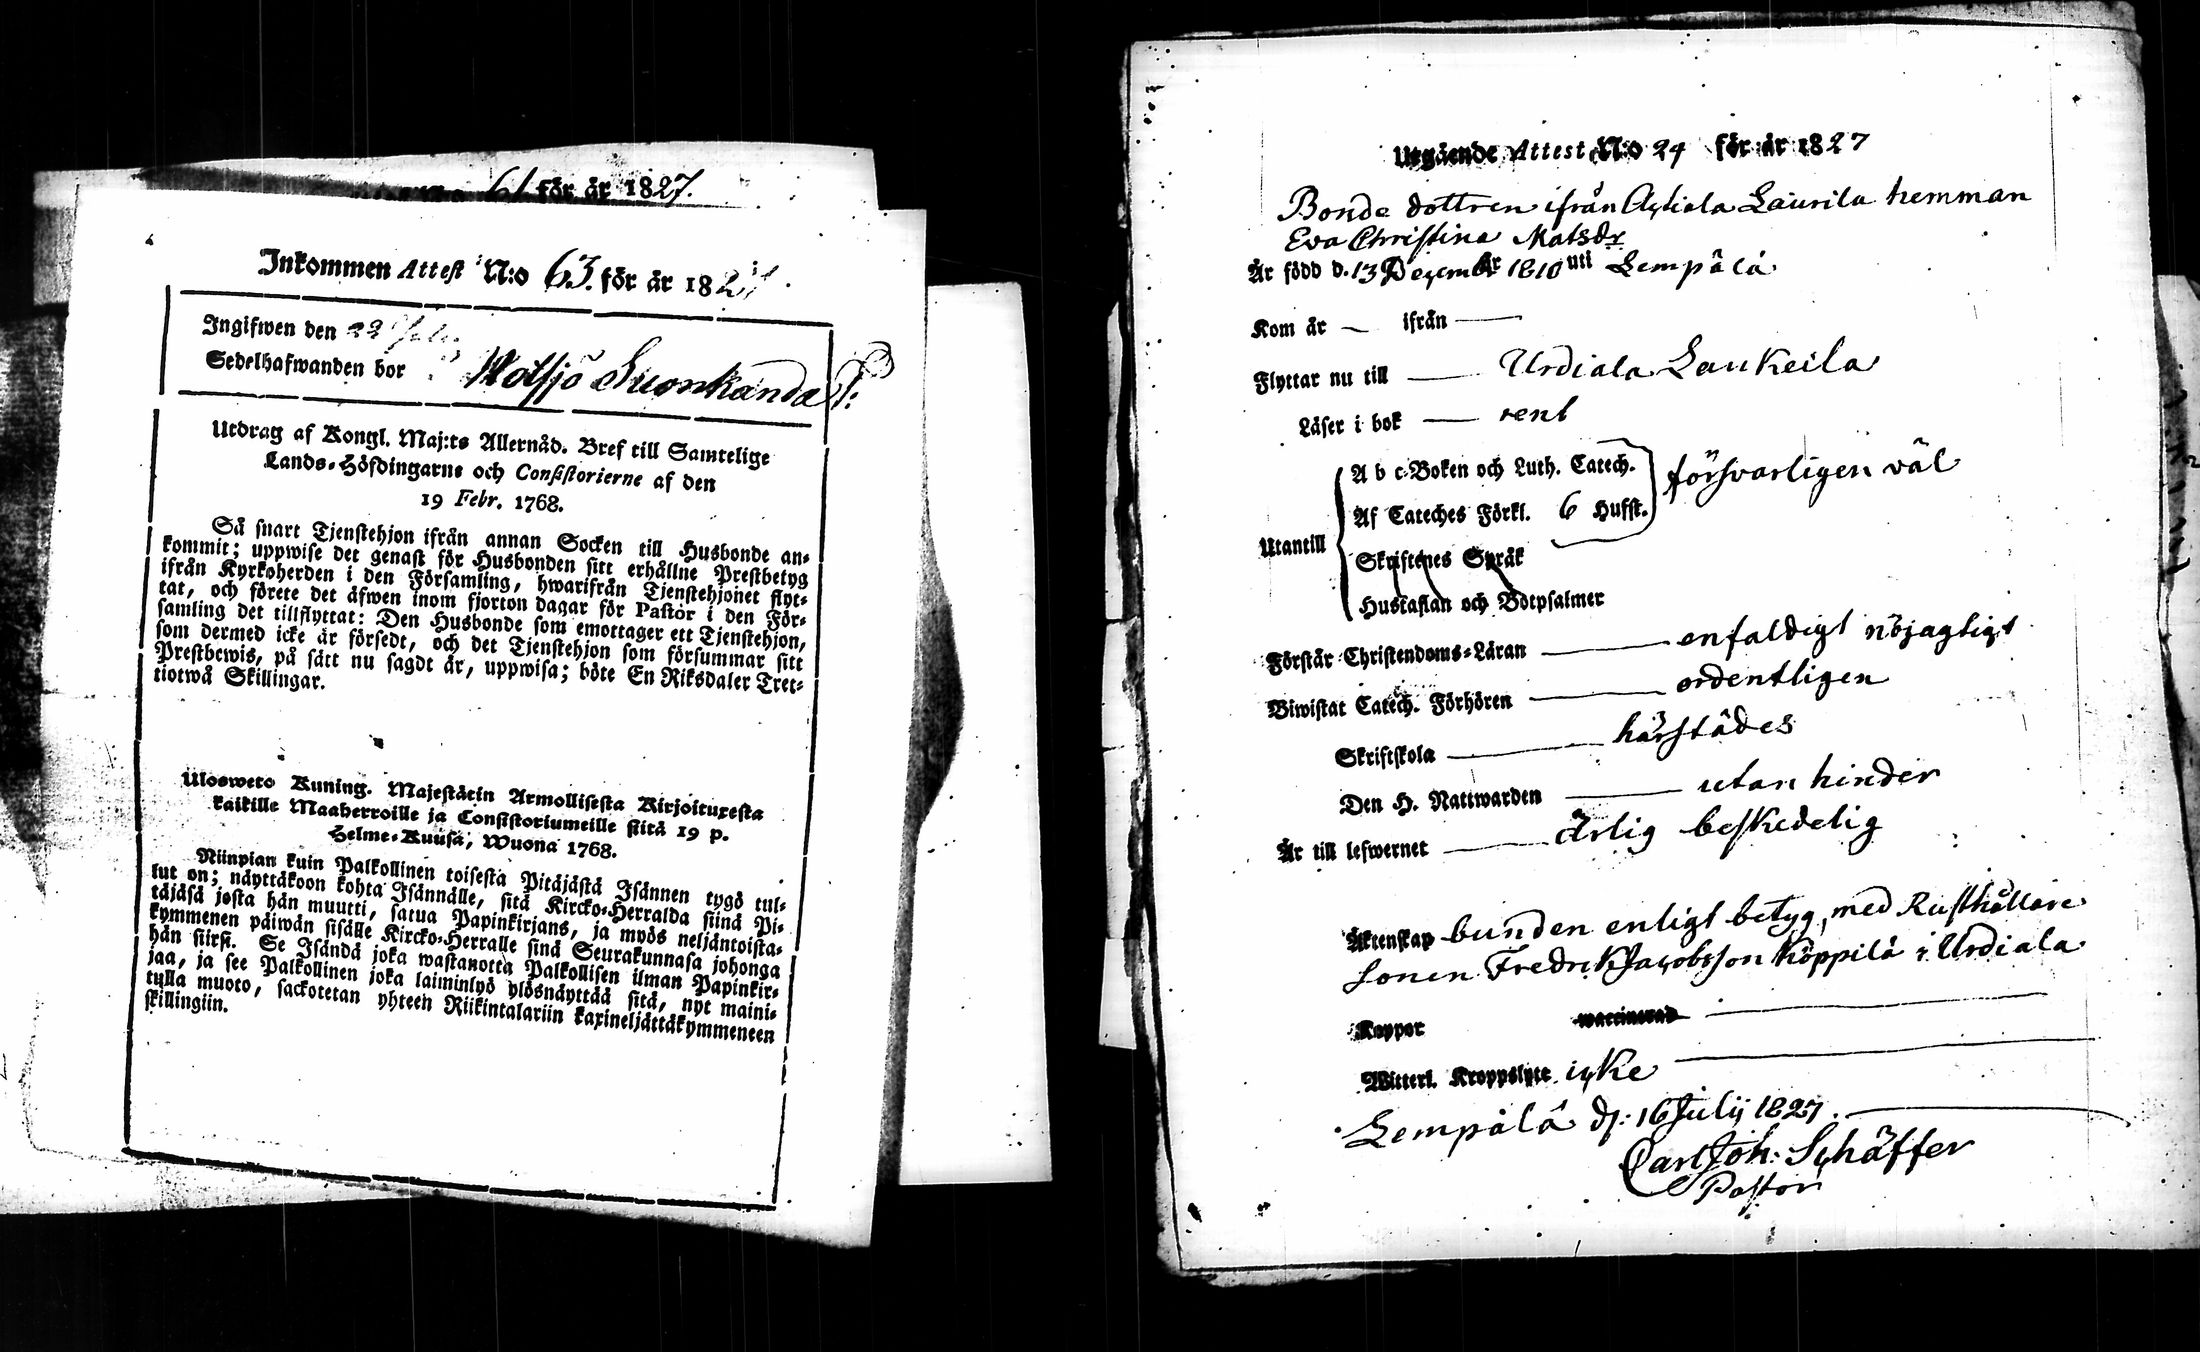 61 för år 1827.
Inkommen Attest N:o 63. för år 1827.
Ingifwen den 22 July
Sedelhafwanden bor Notsjö Suonkanda T:
Utdrag af Kongl. Maj:ts Allernåd. Bref till Samtelige
Lands-Höfdingarne och Consistorierne af den
19 Febr. 1768.
Så snart Tjenstehjon ifrån annan Socken till Husbonde an-
kommit; uppwise det genast för Husbonden sitt erhållne Prestbetyg
ifrån Kyrkoherden i den Församling, hwarifrån Tjenstehjonet flyt-
tat, och förete det äfwen inom fjorton dagar för Pastor i den För-
samling det tillflyttat: Den Husbonde som emottager ett Tjenstehjon,
som dermed icke är försedt, och det Tjenstehjon som försummar sitt
Prestbewis, på sätt nu sagdt är, uppwisa; böte En Riksdaler Tret-
tiotwå Skillingar.
Ulosweto Kuning. Majestätin Armollisesta Kirjoituxesta
kaikille Maaherroille ja Consistoriumeille siitä 19 p.
Helme-Kuusa, Wuona 1768.
Niinpian kuin Palkollinen toisesta Pitäjästä Isännen tygö tul-
lut on; näyttäkoon kohta Isännälle, sitä Kircko-Herralda siinä Pi-
täjäsä josta hän muutti, satua Papinkirjans, ja myös neljäntoista-
kymmenen päiwän sisälle Kircko-Herralle sinä Seurakunnasa johonga
hän siirsi. Se Isändä joka wastanotta Palkollisen ilman Papinkir-
jaa, ja see Palkollinen joka laiminlyö ylösnäyttää sitä, nyt maini-
tulla muoto, sackotetan yhteen Riikintalariin kaxineljättäkymmeneen
skillingiin.
Utgående Attest N:o 24 för år 1827
Bonde dottren ifrån Laurila hemman
Eva Christina Matsdr
Är född d. 13 Decembr 1810 uti Lempälä
Kom år — ifrån —
Flyttar nu till — Urdiala Laukeila
Läser i bok — rent
A b c-Boken och Luth. Catech.
Af Cateches Förkl. 6 Hufst. försvarligen väl
Utantill
Skriftenes Språk
Hustaflan och Botpsalmer
Förstår Christendoms-Läran — enfaldigt nöjagtigt
Biwistat Catech. Förhören — ordentligen
Skriftskola — härstädes
Den H. Nattwarden — utan hinder
Är till lefwernet — ärlig beskedelig
Äktenskap bunden enligt betyg, med Rusthållare
sonen Fredrik Jacobsson Köppilä i Urdiala
Koppor waccinerad —
Witterl. Kroppslyte icke —
Lempälä d: 16 Julii 1827.
Carl Joh: Schäffer
Pastor